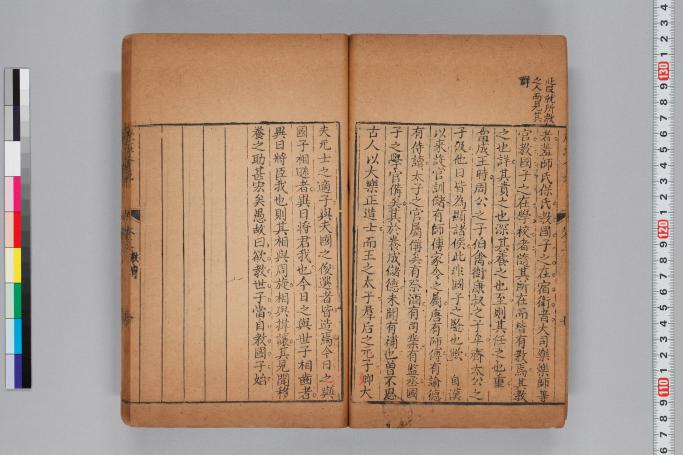 此段就所教
之人而見其
詳
者蓋師氏保氏教國子之在宿衛者大司樂樂師等
官教國子之在學校者隨其所在而皆有教焉其教
之也詳其責之也深其養之也至則其任之也重
當成王時周公之子伯禽衛康叔之子牟齊太公之
子伋他日皆為顯諸侯此非國子之驗也歟 自漢
以來設官訓儲有師傅家令之屬唐有師傅有諭德
有侍讀太子之官屬備矣有祭酒有司業有監丞國
子之學官備矣其於養成儲德未聞有補也曾不思
古人以大樂正造士而王之太子羣后之元子卿大
夫元士之適子與夫國之俊選者皆造焉今日之與
國子相遜者異日將君我也今日之與世子相齒者
異日將臣我也則其相與周旋相與揖讓其見聞移
養之助甚宏矣愚故曰欲教世子當自教國子始
130
120
110